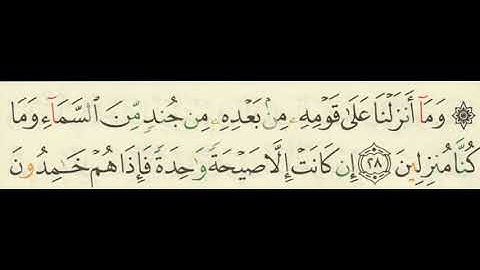 ۞ وَمَآ أَنزَلۡنَا عَلَىٰ قَوۡمِهِۦ مِنۢ بَعۡدِهِۦ مِن جُندٖ مِّنَ ٱلسَّمَآءِ وَمَا
كُنَّا مُنزِلِينَ ٢٨ إِن كَانَتۡ إِلَّا صَيۡحَةٗ وَٰحِدَةٗ فَإِذَا هُمۡ خَٰمِدُونَ